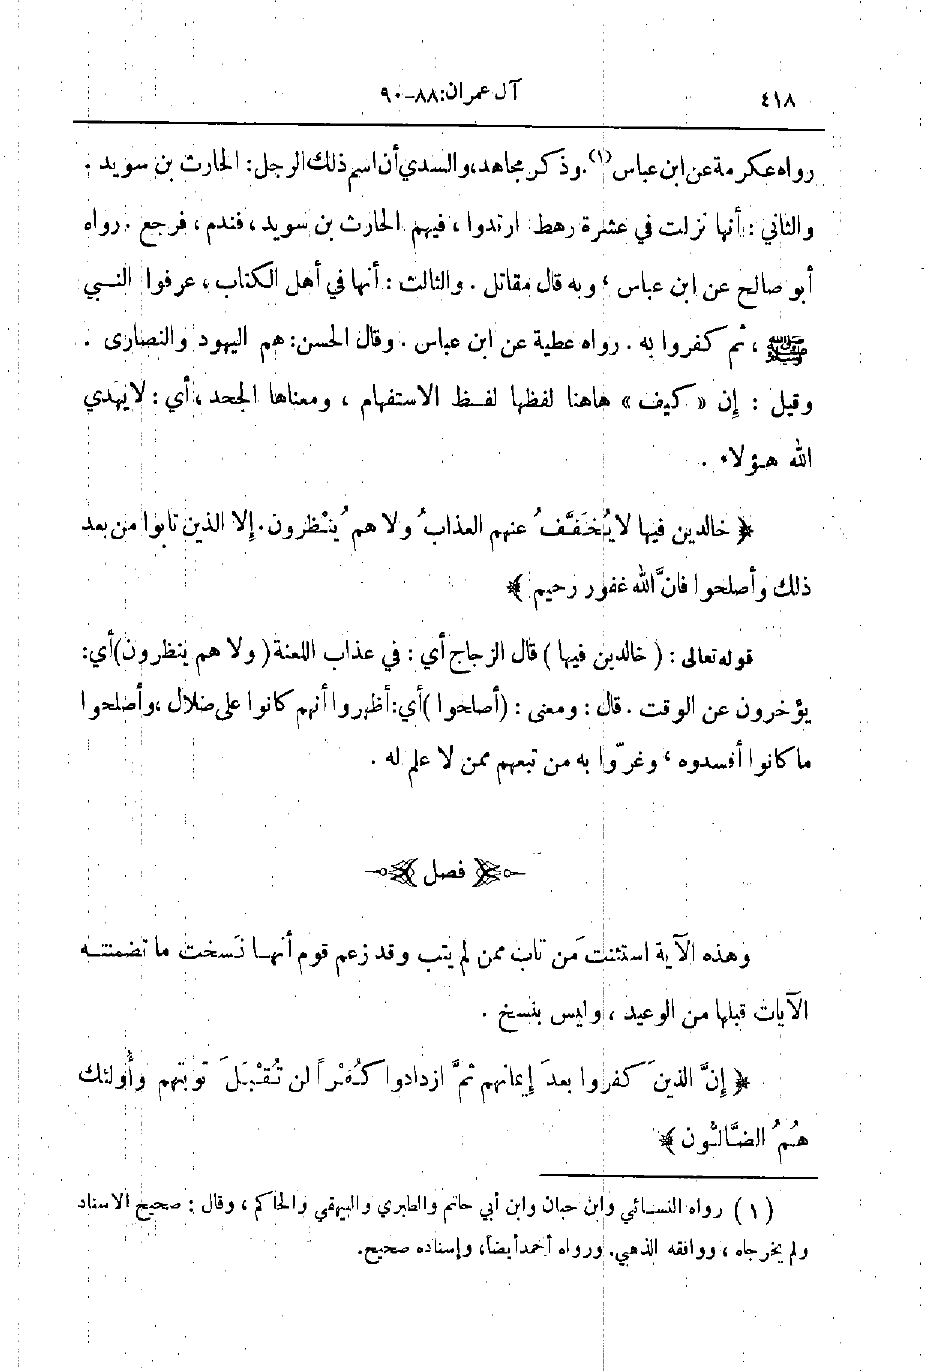 ٤١٨
آل عمران: ٨٨-٩٠
رواه عكرمة عن ابن عباس (١). وذكر مجاهد، والسدي أن اسم ذلك الرجل: الحارث بن سويد .
والثاني : أنها نزلت في عشرة رهط ارتدوا ، فيهم الحارث بن سويد ، فندم ، فرجع . رواه
أبو صالح عن ابن عباس ، وبه قال مقاتل . والثالث : أنها في أهل الكتاب ، عرفوا النبي
ﷺ ، ثم كفروا به . رواه عطية عن ابن عباس . وقال الحسن : هم اليهود والنصارى .
وقيل : إن « كيف » هاهنا لفظها لفظ الاستفهام ، ومعناها الجحد ، أي : لا يهدي
الله هؤلاء .
﴿ خالدين فيها لا يُخَفَّفُ عنهم العذابُ ولا هم يُنْظرون . إلا الذين تابوا من بعد
ذلك وأصلحوا فانَّ الله غفور رحيم ﴾
قوله تعالى : ( خالدين فيها ) قال الزجاج أي : في عذاب اللعنة ( ولا هم ينظرون ) أي :
يؤخرون عن الوقت . قال : ومعنى : ( أصلحوا ) أي : أظهروا أنهم كانوا على ضلال ، وأصلحوا
ما كانوا أفسدوه ، وغرّوا به من تبعهم ممن لا علم له .
فصل
وهذه الآية استثنت مَن تاب ممن لم يتب وقد زعم قوم أنها نَسخت ما تضمنته
الآيات قبلها من الوعيد ، وليس بنسخ .
﴿ إنَّ الذينَ كفروا بعدَ إيمانهم ثمَّ ازدادوا كُفْراً لن تُقْبَلَ توبتهم وأُولئك
هُمُ الضَّالُّون ﴾
( ١ ) رواه النسائي وابن حبان وابن أبي حاتم والطبري والبيهقي والحاكم ، وقال : صحيح الاسناد
ولم يخرجاه ، ووافقه الذهبي . ورواه أحمد أيضاً ، وإسناده صحيح .